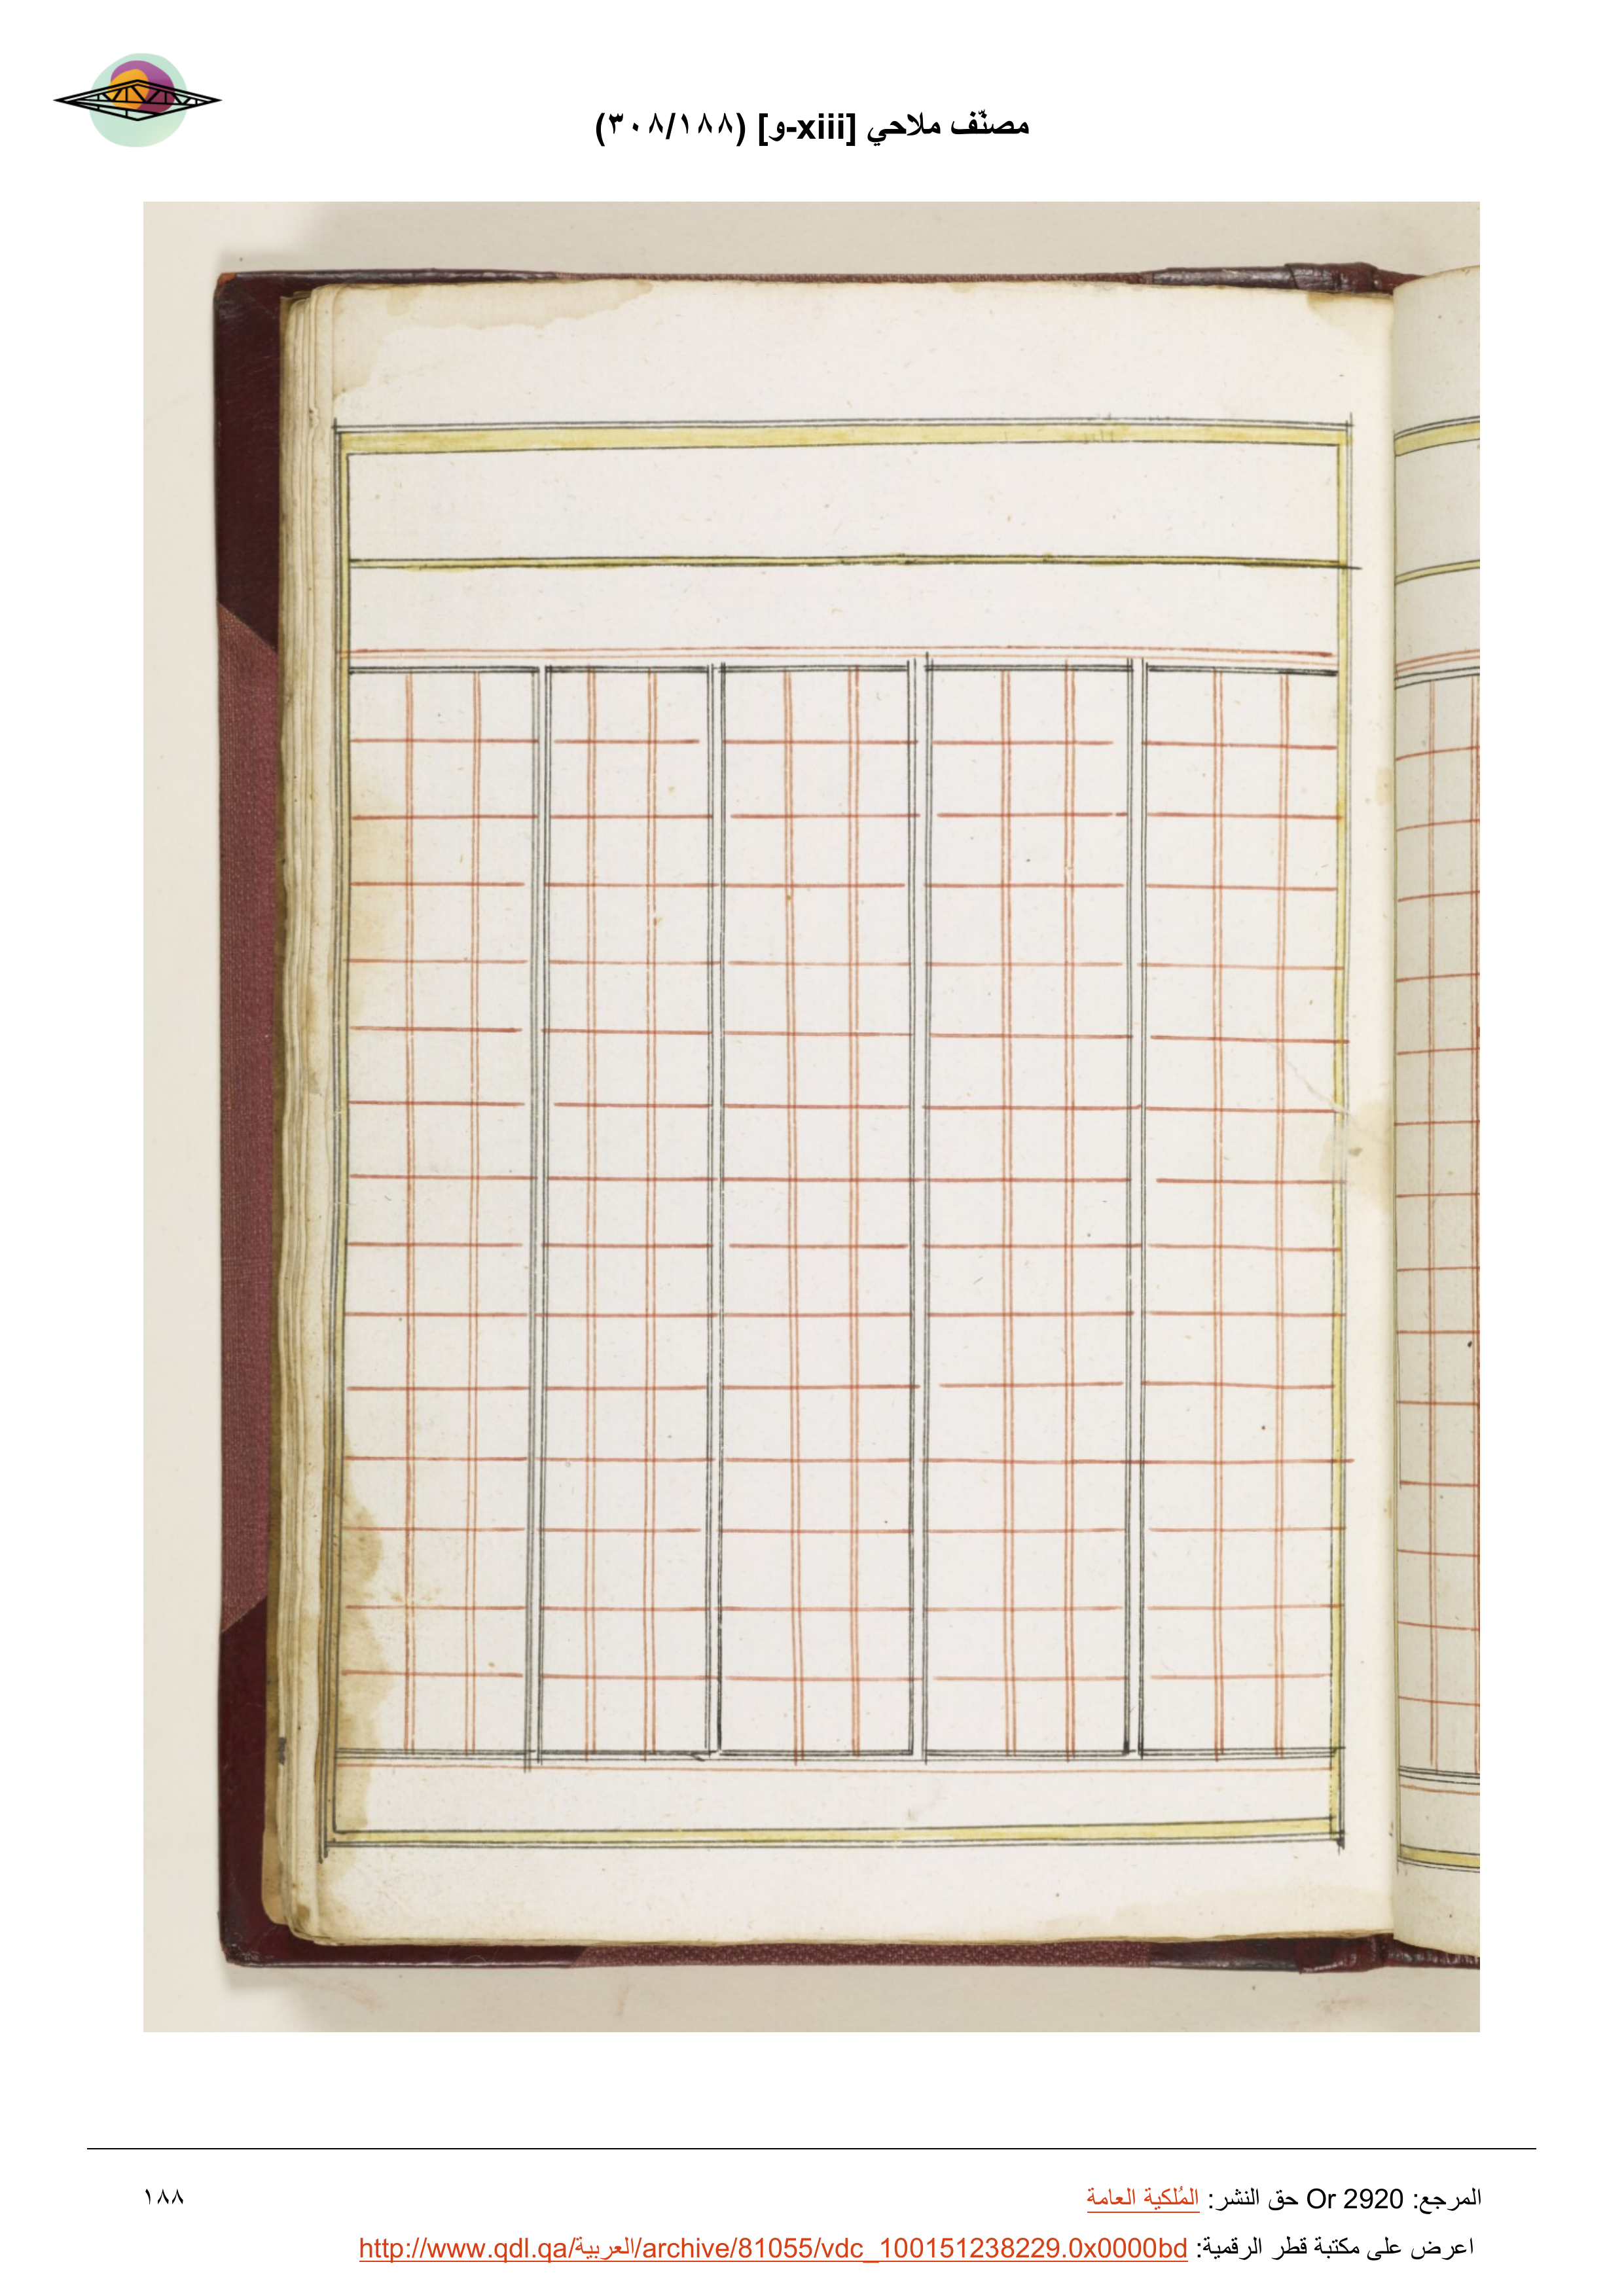 مصنّف ملاحي [xiii-و] (٣٠٨/١٨٨)
المرجع: Or 2920 حق النشر: المُلكية العامة
١٨٨
اعرض على مكتبة قطر الرقمية: http://www.qdl.qa/العربية/archive/81055/vdc_100151238229.0x0000bd